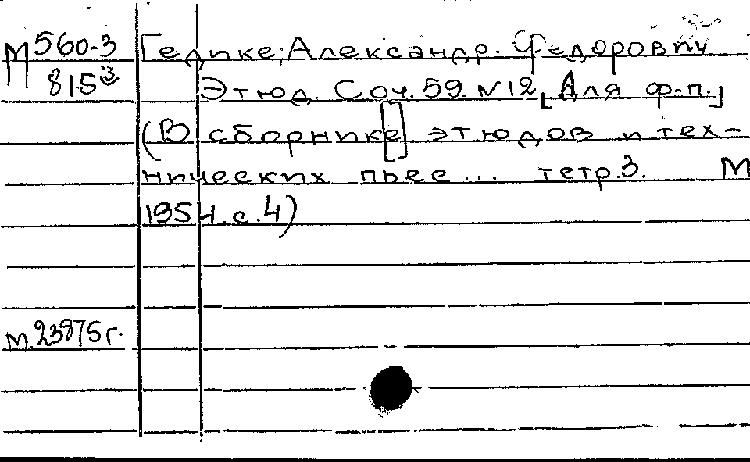 М 560-3 Гедике, Александр Федорович
815з Этюд. Соч. 59 №12 [Для ф.п.]
(В сборнике[е] этюдов и тех-
нических пьес... тетр.3. М
1954. с.4)
М.23875г.